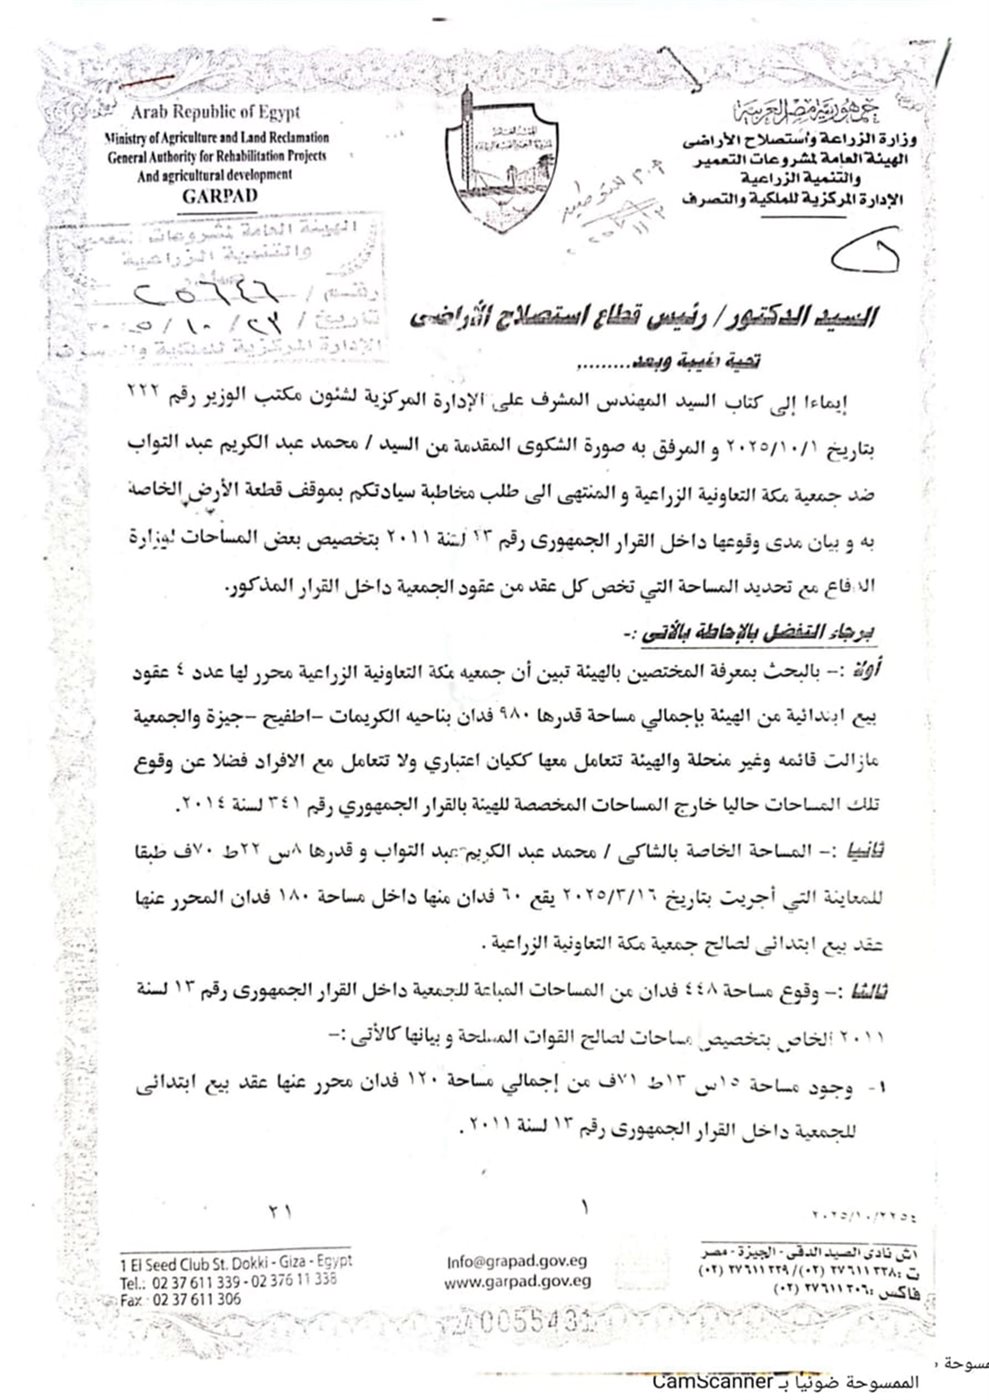 Arab Republic of Egypt
Ministry of Agriculture and Land Reclamation
General Authority for Rehabilitation Projects
And agricultural development
GARPAD
جمهورية مصر العربية
وزارة الزراعة وأستصلاح الأراضى
الهيئة العامة لمشروعات التعمير
والتنمية الزراعية
الإدارة المركزية للملكية والتصرف
الهيئة العامة لمشروعات التعمير
والتنمية الزراعية
رقم / ٢٥٦٤٦
تاريخ / ٢٣ / ١٠ / ٢٠٢٥
الإدارة المركزية للملكية والتصرف
السيد الدكتور / رئيس قطاع استصلاح الأراضى
تحية طيبة وبعد.........,
إيماءا إلى كتاب السيد المهندس المشرف على الإدارة المركزية لشئون مكتب الوزير رقم ٢٢٢
بتاريخ ٢٠٢٥/١٠/١ و المرفق به صورة الشكوى المقدمة من السيد / محمد عبد الكريم عبد التواب
ضد جمعية مكة التعاونية الزراعية و المنتهى الى طلب مخاطبة سيادتكم بموقف قطعة الأرض الخاصة
به و بيان مدى وقوعها داخل القرار الجمهورى رقم ١٣ لسنة ٢٠١١ بتخصيص بعض المساحات لوزارة
الدفاع مع تحديد المساحة التي تخص كل عقد من عقود الجمعية داخل القرار المذكور.
برجاء التفضل بالإحاطة بالأتى :-
أولا :- بالبحث بمعرفة المختصين بالهيئة تبين أن جمعيه مكة التعاونية الزراعية محرر لها عدد ٤ عقود
بيع ابتدائية من الهيئة بإجمالي مساحة قدرها ٩٨٠ فدان بناحيه الكريمات -اطفيح -جيزة والجمعية
مازالت قائمه وغير منحلة والهيئة تتعامل معها ككيان اعتباري ولا تتعامل مع الافراد فضلا عن وقوع
تلك المساحات حاليا خارج المساحات المخصصة للهيئة بالقرار الجمهوري رقم ٣٤١ لسنة ٢٠١٤.
ثانيا :- المساحة الخاصة بالشاكى / محمد عبد الكريم عبد التواب و قدرها ٨س ٢٢ط ٧٠ف طبقا
للمعاينة التي أجريت بتاريخ ٢٠٢٥/٣/١٦ يقع ٦٠ فدان منها داخل مساحة ١٨٠ فدان المحرر عنها
عقد بيع ابتدائى لصالح جمعية مكة التعاونية الزراعية .
ثالثا :- وقوع مساحة ٤٤٨ فدان من المساحات المباعة للجمعية داخل القرار الجمهورى رقم ١٣ لسنة
٢٠١١ الخاص بتخصيص مساحات لصالح القوات المسلحة و بيانها كالأتى :-
١- وجود مساحة ١٥س ١٣ط ٧١ف من إجمالي مساحة ١٢٠ فدان محرر عنها عقد بيع ابتدائى
للجمعية داخل القرار الجمهورى رقم ١٣ لسنة ٢٠١١ .
٢١
١
1 El Seed Club St. Dokki - Giza - Egypt
Tel.: 02 37 611 339 - 02 376 11 338
Fax : 02 37 611 306
Info@grapad.gov.eg
www.garpad.gov.eg
١ش نادى الصيد الدقى - الجيزة - مصر
ت :٣٧٦١١٣٣٨ (٠٢)/ ٣٧٦١١٣٣٩ (٠٢)
فاكس :٣٧٦١١٣٠٦ (٠٢)
0055431
الممسوحة ضوئيا بـ CamScanner